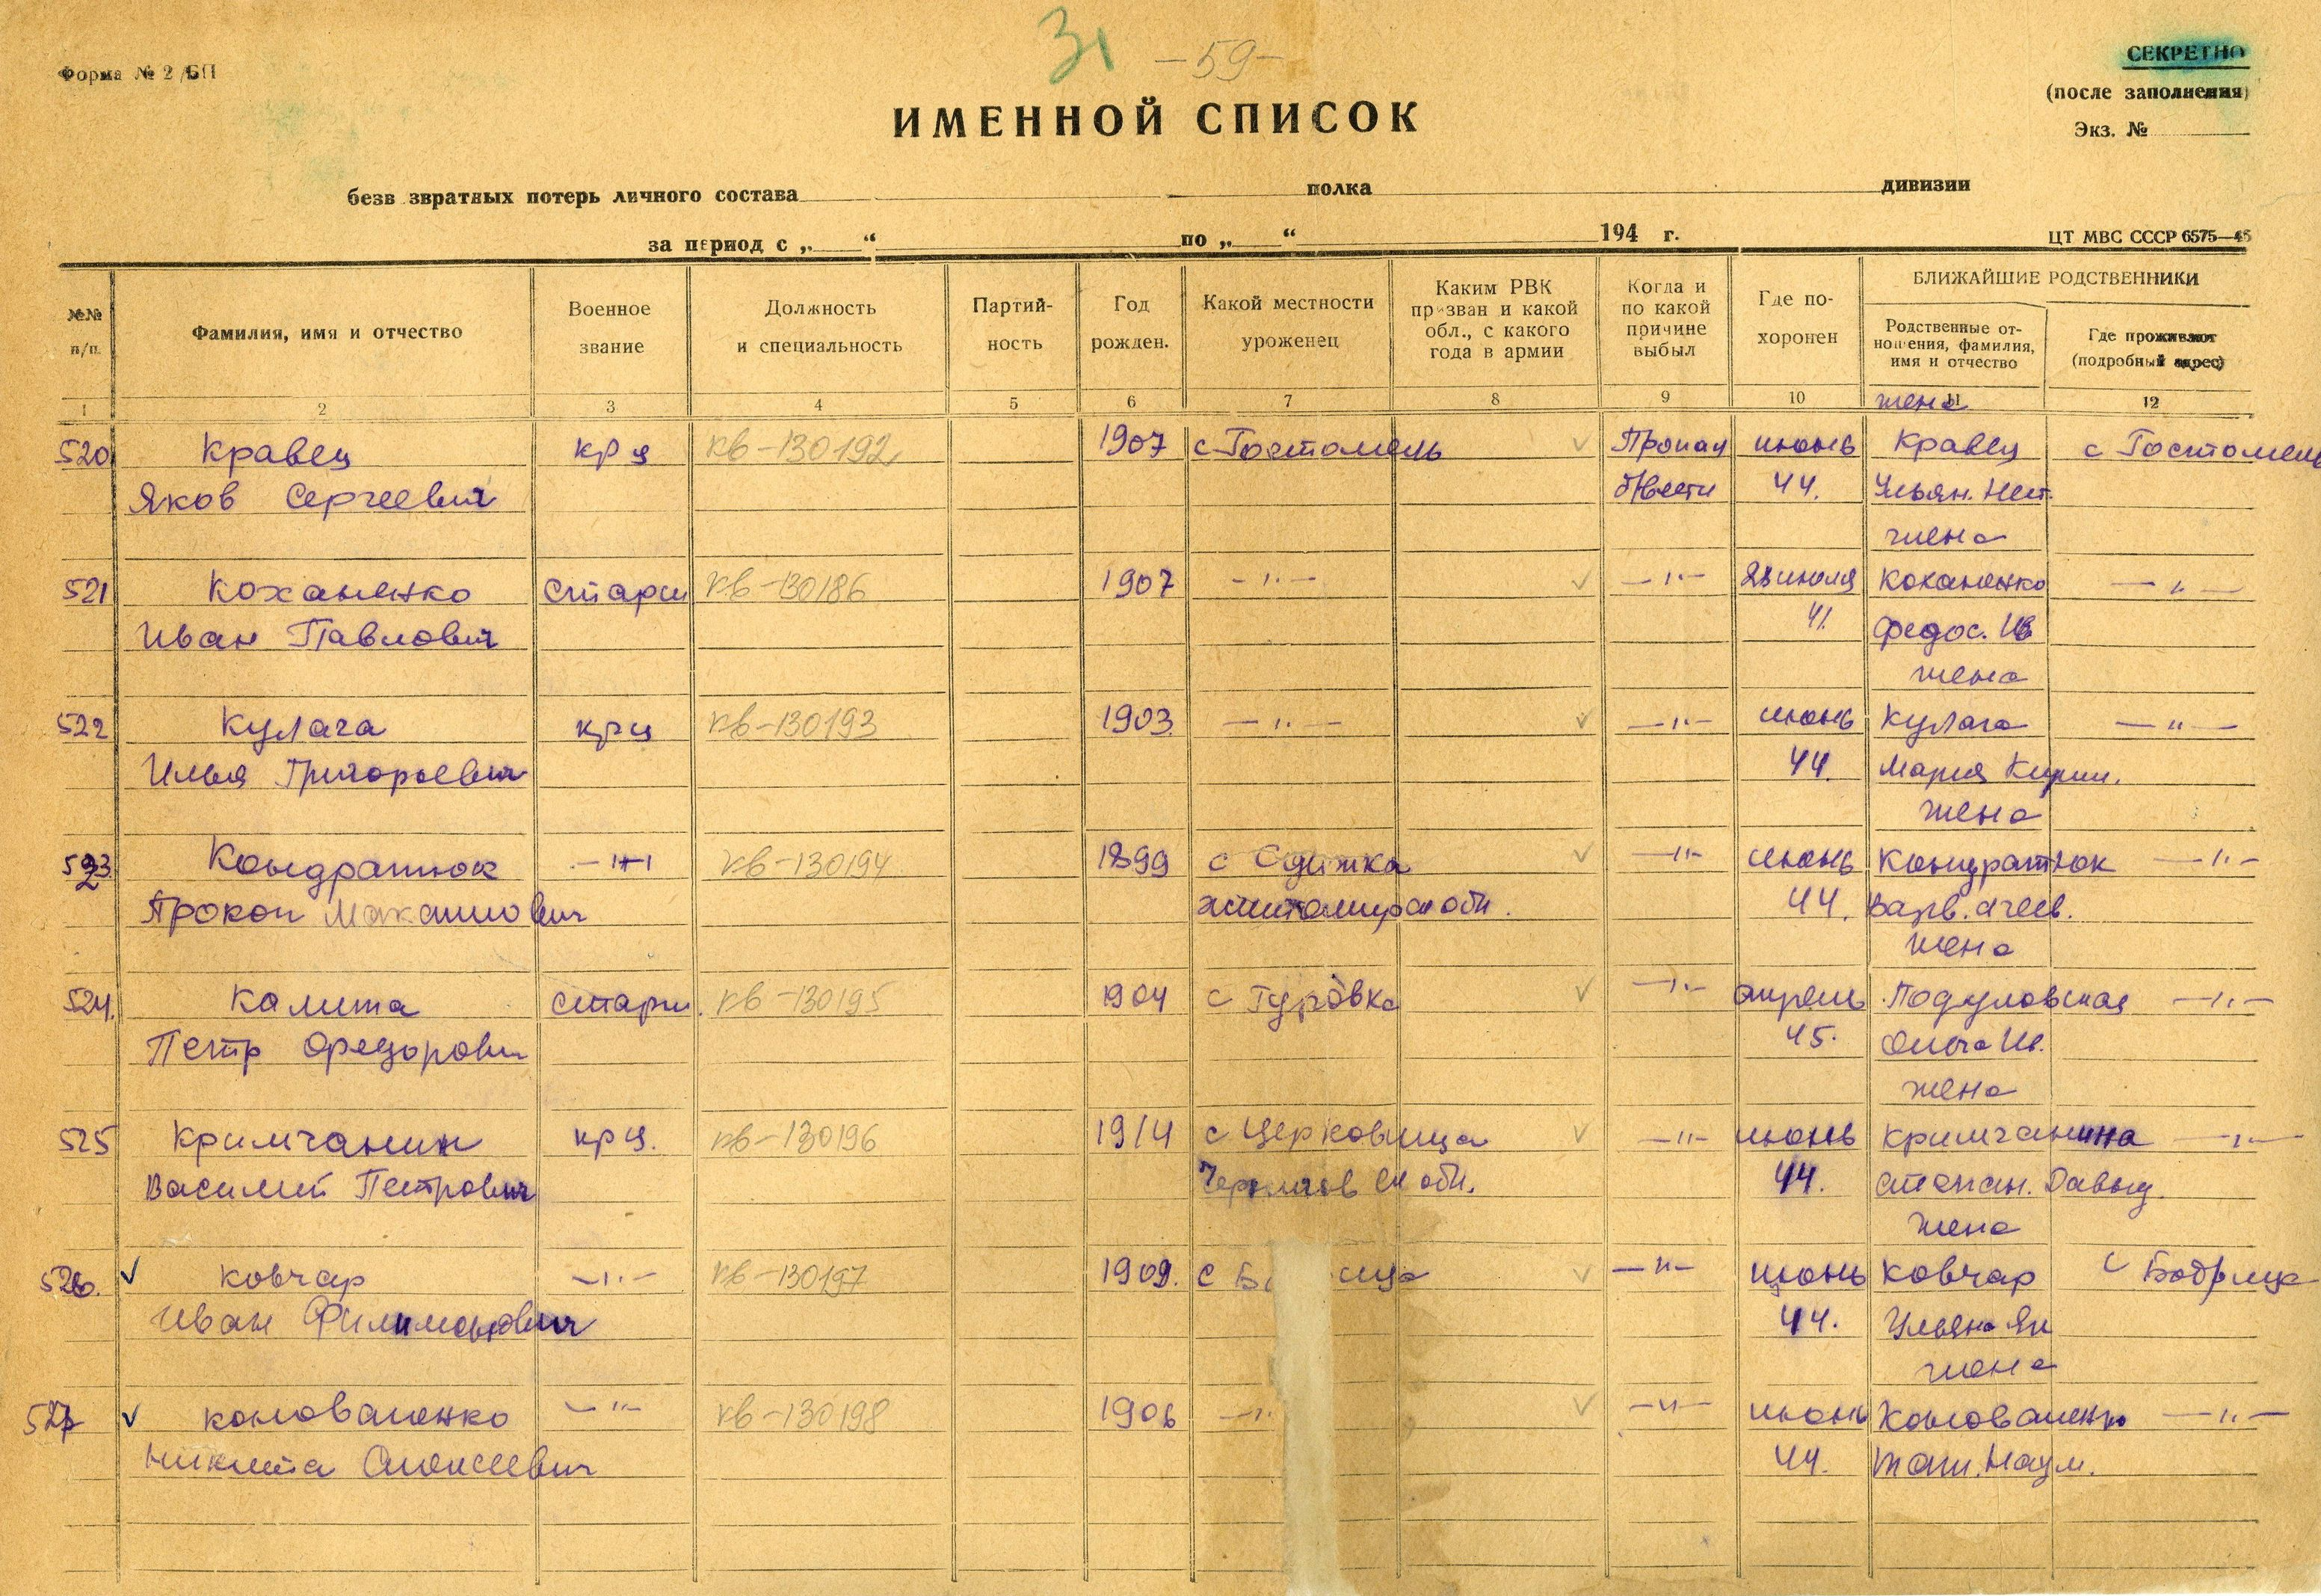 31 -59-
Форма № 2/БП
СЕКРЕТНО
(после заполнения)
Экз. №
ИМЕННОЙ СПИСОК
безв звратных потерь личного состава полка дивизии
за период с „ “ по „ “ 194 г.
ЦТ МВС СССР 6575—45
№№ п/п.
Фамилия, имя и отчество
Военное звание
Должность и специальность
Партий-ность
Год рожден.
Какой местности уроженец
Каким РВК призван и какой обл., с какого года в армии
Когда и по какой причине выбыл
Где по-хоронен
БЛИЖАЙШИЕ РОДСТВЕННИКИ
Родственные от-ношения, фамилия, имя и отчество
Где проживают (подробный адрес)
1 2 3 4 5 6 7 8 9 10 11 12
жена
520 Кравец крц кв-130192 1907 с Гостомель Пропал июнь Кравец с Гостомель
Яков Сергеевич б/вести 44. Ульян. Нест.
жена
521 Коханенко старш кв-130186 1907 -"- -"- июля Коханенко -"-
Иван Павлович 41. Федос. Ив
жена
522 Кулага крц кв-130193 1903. -"- -"- июнь Кулага -"-
Илья Григорьевич 44. Мария Кирил.
жена
523. Кондратюк -"- кв-130194 1899 с -"- июнь Кондратюк -"-
Прокоп житомирск обл. 44. Варв.
жена
524. Калита старш. кв-130195 1904 с Гуровка -"- апрель Подуловская -"-
Петр Федорович 45. Ольга Ив.
жена
525 Кримчанин крц. кв-130196 1914 с Церковища -"- июнь Кримчанина -"-
Василий Петрович Чернигов ск обл. 44. Степан. Давыд.
жена
526. Ковчар -"- кв-130197 1909. с Б ица -"- июнь Ковчар с Бобрица
Иван Филимонович 44. Ульяна Як
жена
527 Коноваленко -"- кв-130198 1906 -" -"- июнь Коноваленко -"-
Никита Алексеевич 44. Наум.